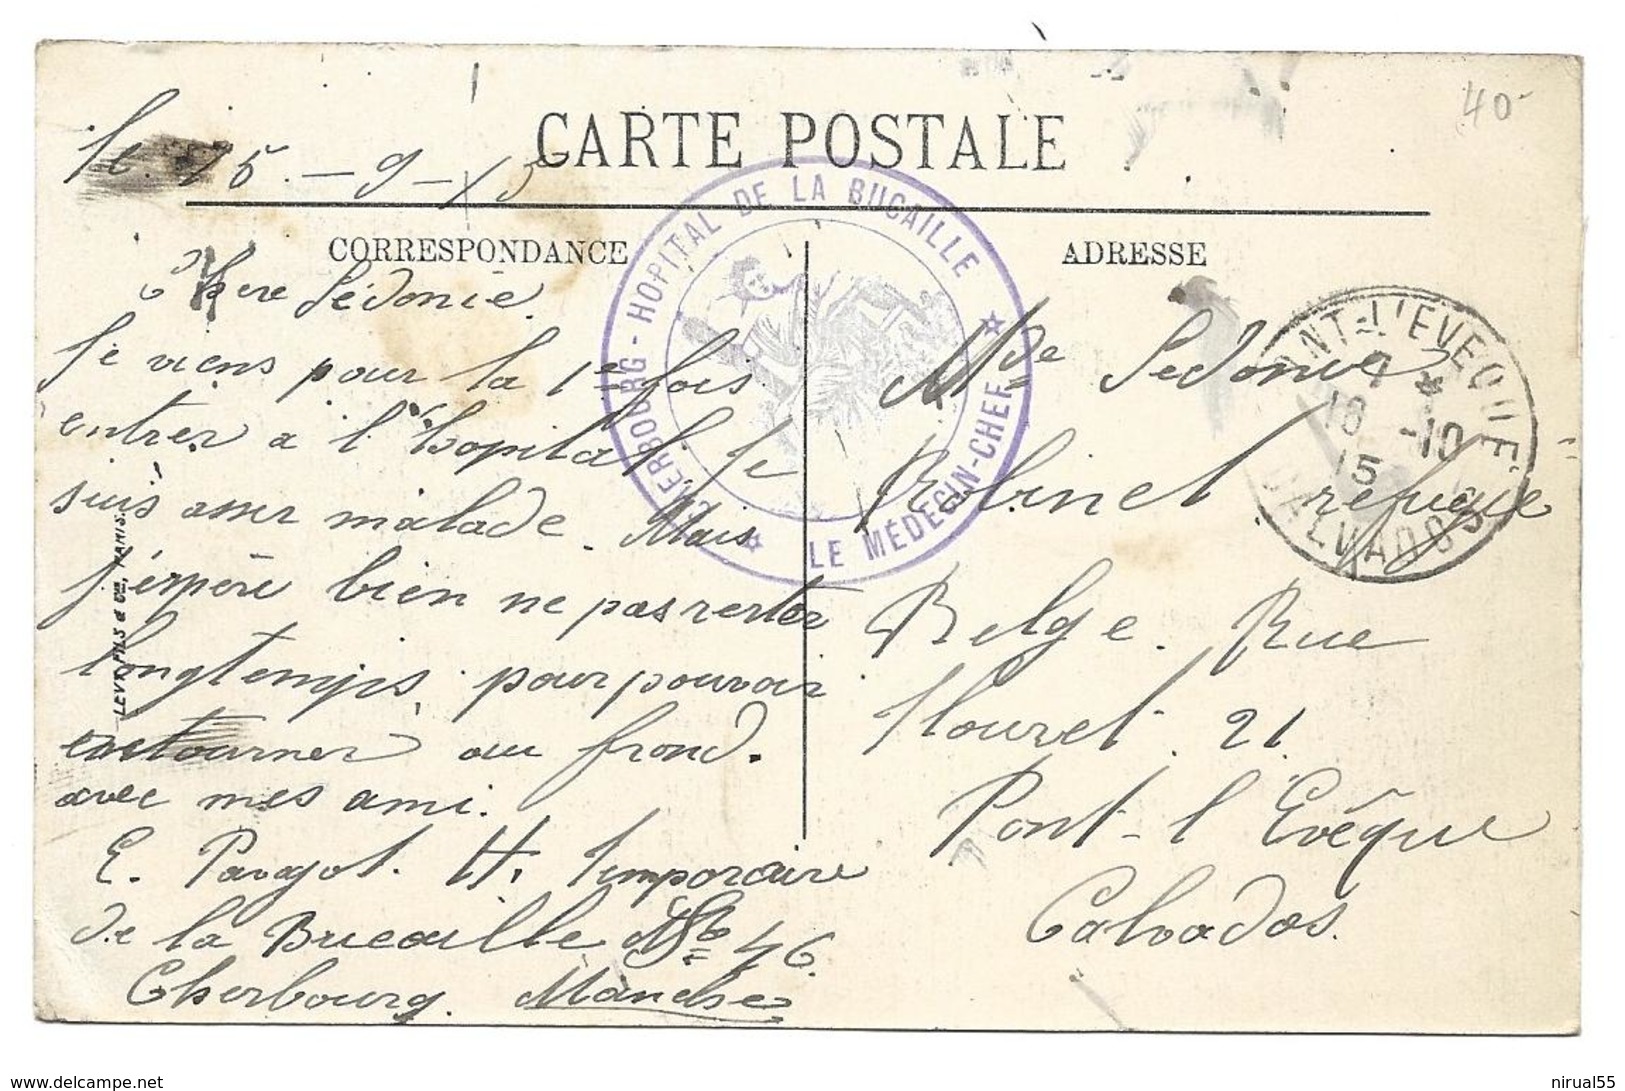 40-
CARTE POSTALE
le 15.-9-15
CORRESPONDANCE
ADRESSE
CHERBOURG - HOPITAL DE LA BUCAILLE
LE MÉDECIN-CHEF
PONT-L'EVEQUE
7 *
16 -10
15
CALVADOS
Chere Sédonie.
Je viens pour la 1re fois
entrer a l'hopital je
suis assez malade. Mais
j'éspère bien ne pas rester
longtemps, pour pouvoir
retourner au frond.
avec mes ami.
E. Pavgot. H. temporaire
de la Bucaille 46.
Cherbourg. Manche
LEVY FILS & Cie, PARIS.
Mde Sedonie
Robinet refugié
Belge. Rue
Houret. 21
Pont-l'Evêque
Calvados.
www.delcampe.net
nirual55